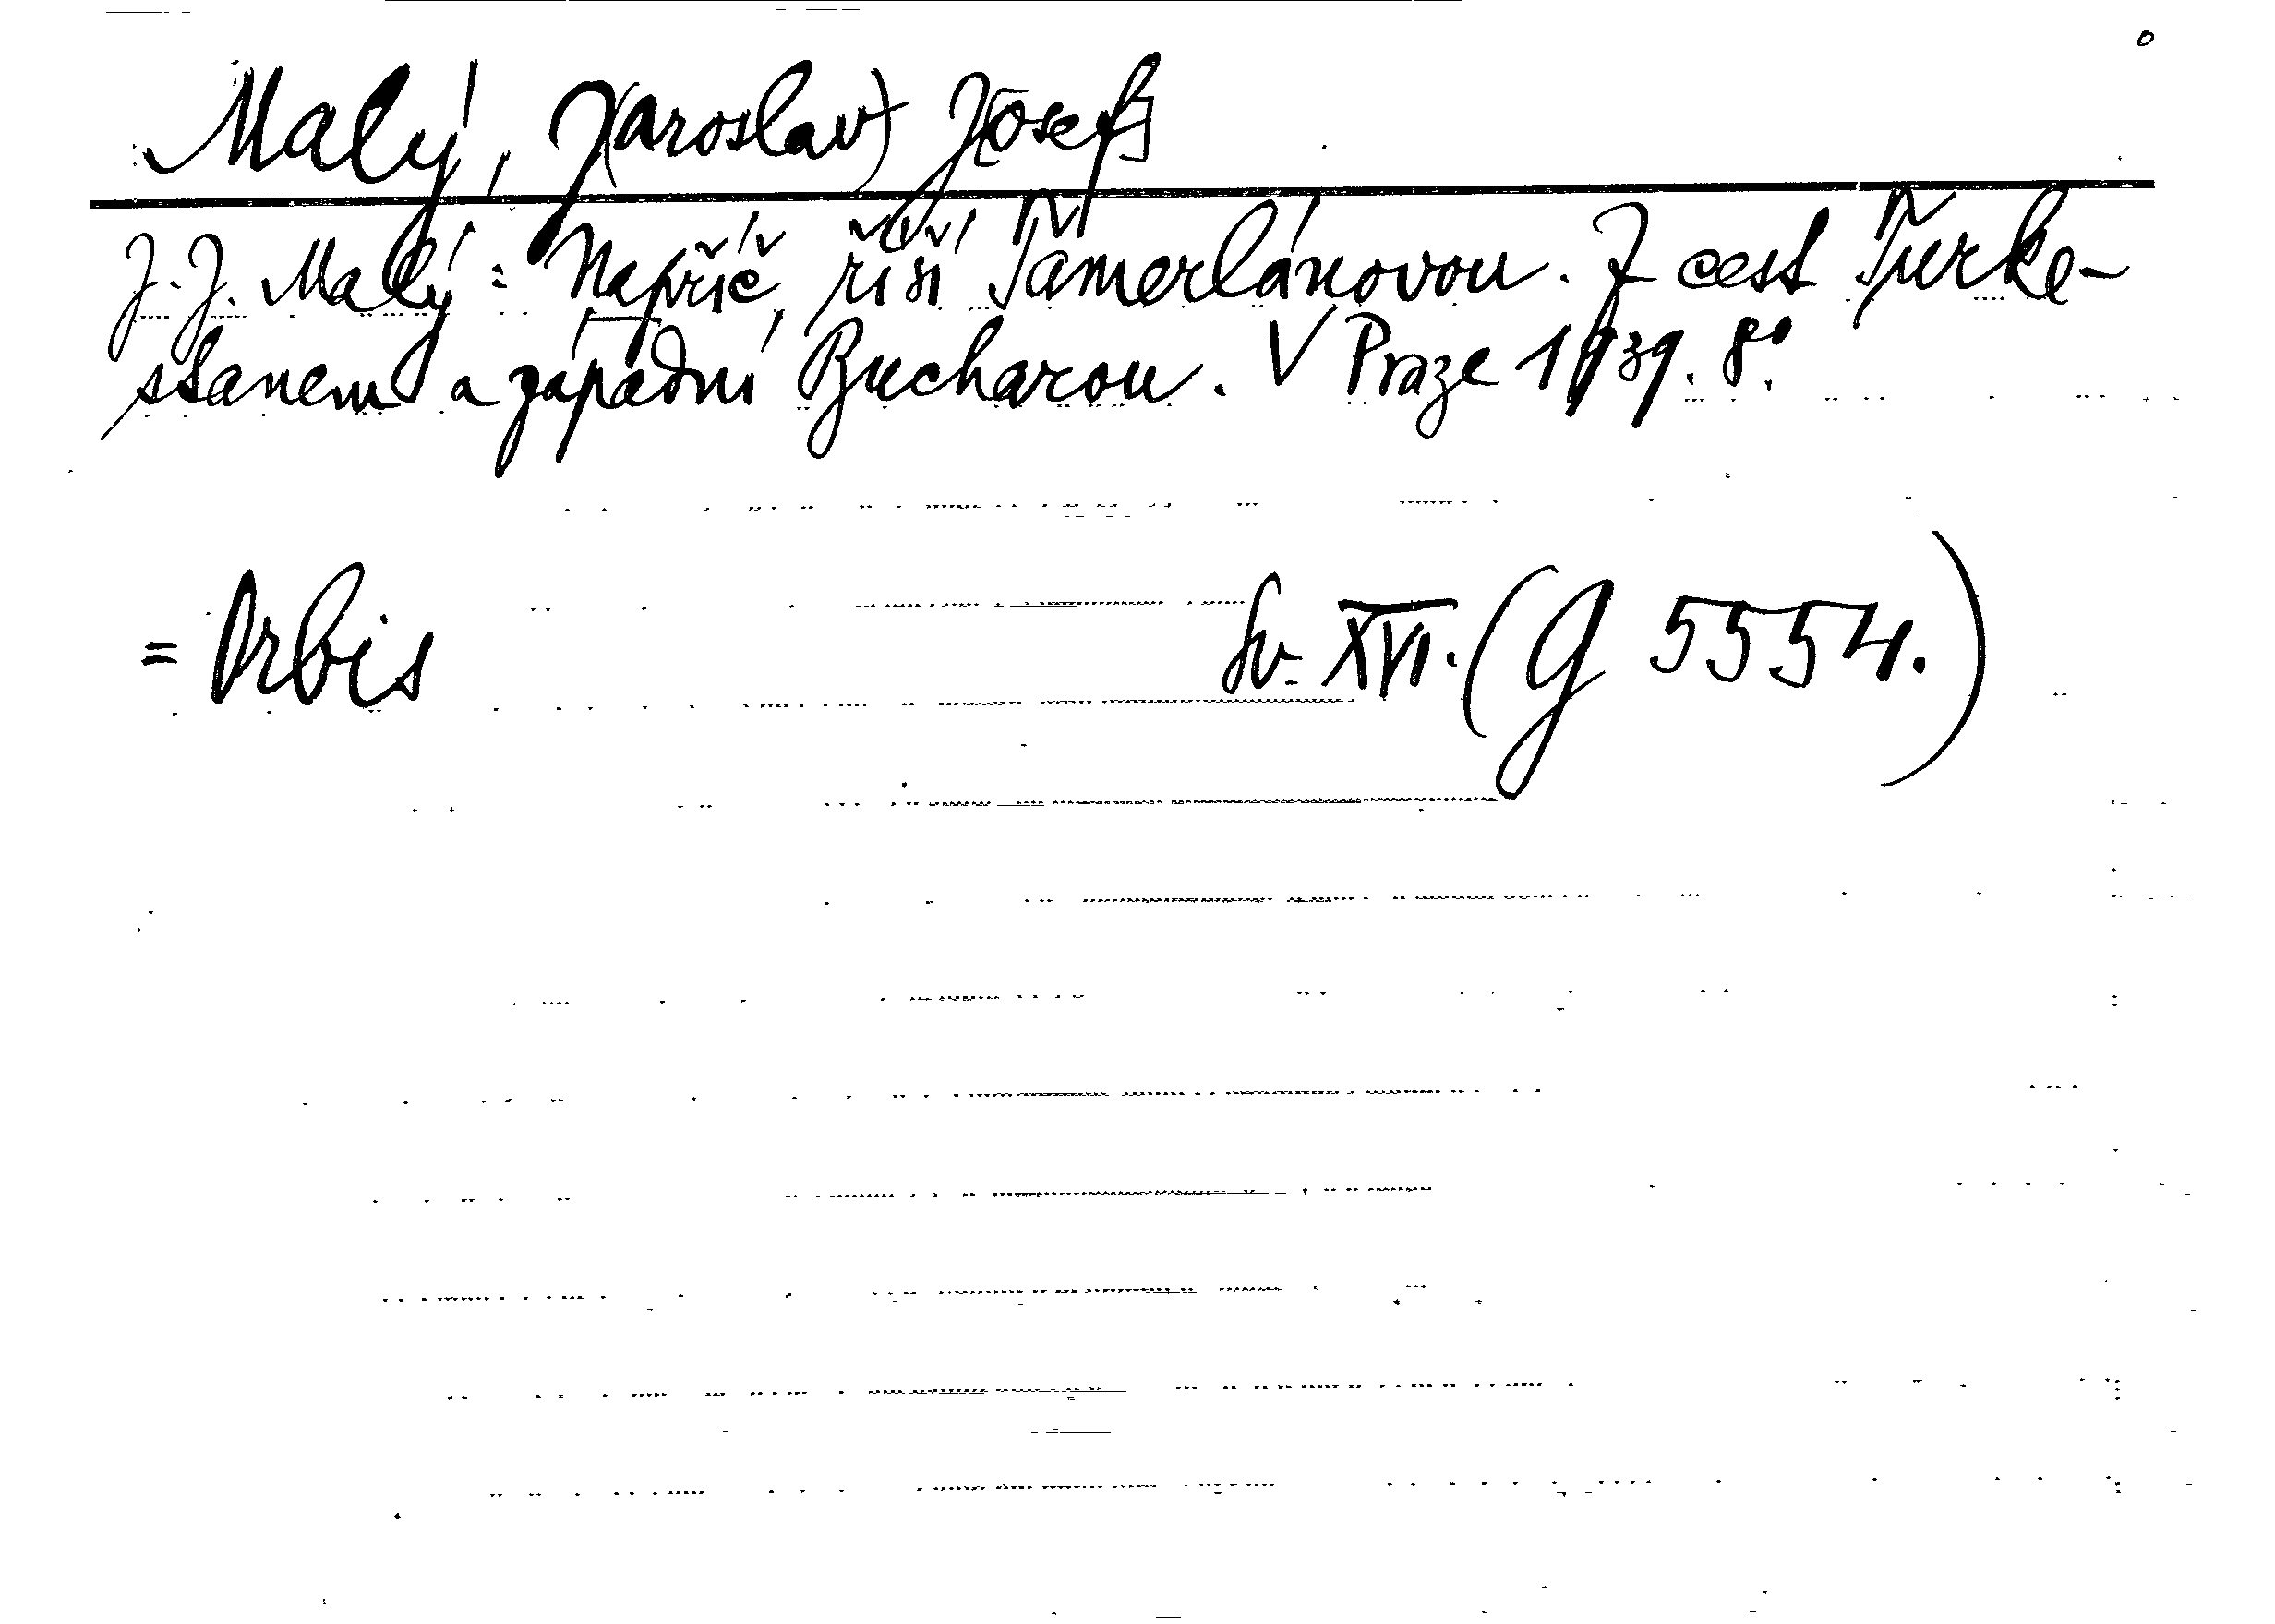 Malý, J(aroslav) J[osef]
J. J. Malý: Napříč říší Tamerlánovou. Z cest Turke-
stanem a západní Bucharou. V Praze 1939. 8°.
= Orbis sv. XVI. (G 5554.)